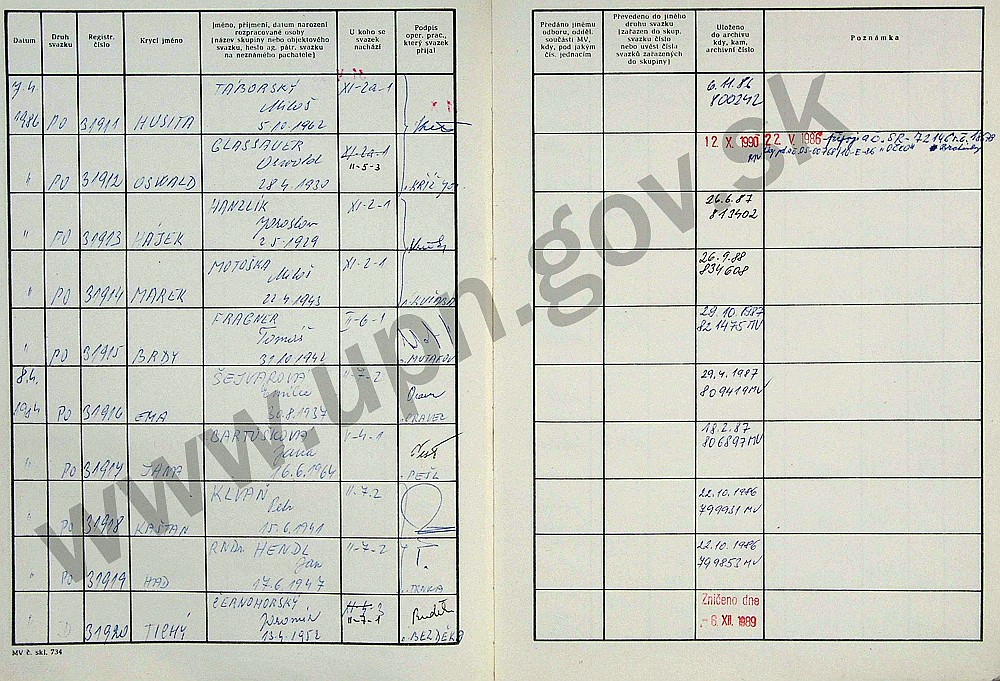 Datum
Druh svazku
Registr. číslo
Krycí jméno
Jméno, příjmení, datum narození
rozpracované osoby
(název skupiny nebo objektového
svazku, heslo ag. pátr. svazku
na neznámého pachatele)
U koho se
svazek
nachází
Podpis
oper. prac.,
který svazek
přijal
Předáno jinému
odboru, odděl.
součásti MV,
kdy, pod jakým
čís. jednacím
Převedeno do jiného
druhu svazku
(zařazen do skup.
svazku číslo
nebo uvést čísla
svazků zařazených
do skupiny)
Uloženo
do archivu
kdy, kam,
archivní číslo
Poznámka
7.4.
1986 PO 31911 HUSITA
TÁBORSKÝ
Miloš
5.10.1962
XI-2a-1
6.11.86
800242
" PO 31912 OSWALD
GLASSAUER
Oswald
28.4.1930
XI-2a-1
II-5-3
12. X. 1990
MV
22. V. 1986
" PO 31913 HÁJEK
HANZLÍK
Jaroslav
2.5.1929
XI-2-1
26.6.87
813402
" PO 31914 MAREK
MOTOŠKA
Miloš
22.4.1943
XI-2-1
26.9.88
834608
" PO 31915 BRDY
FRAGNER
Tomáš
31.10.1942
II-6-1
29.10.1987
821475 MV
8.4.
PO 31916 EMA
ŠEJVAROVÁ
Emilie
30.8.1937
II-7-2
29.4.1987
809419 MV
" PO 31917 JANA
BARTUŠKOVÁ
Jana
16.6.1964
PEŠL
18.2.87
806897 MV
" PO 31918 KAŠTAN
KLVAŇ
Petr
15.6.1941
II-7-2
22.10.1986
799931 MV
" PO 31919 HAD
RNDr. HENDL
Jan
17.6.1947
II-7-2
TRNKA
22.10.1986
799853 MV
" 31920 TICHÝ
ČERNOHORSKÝ
Jaromír
13.4.1952
II-7-1
BEZDĚK
Zničeno dne
- 6. XII. 1989
MV č. skl. 734
www.upn.gov.sk